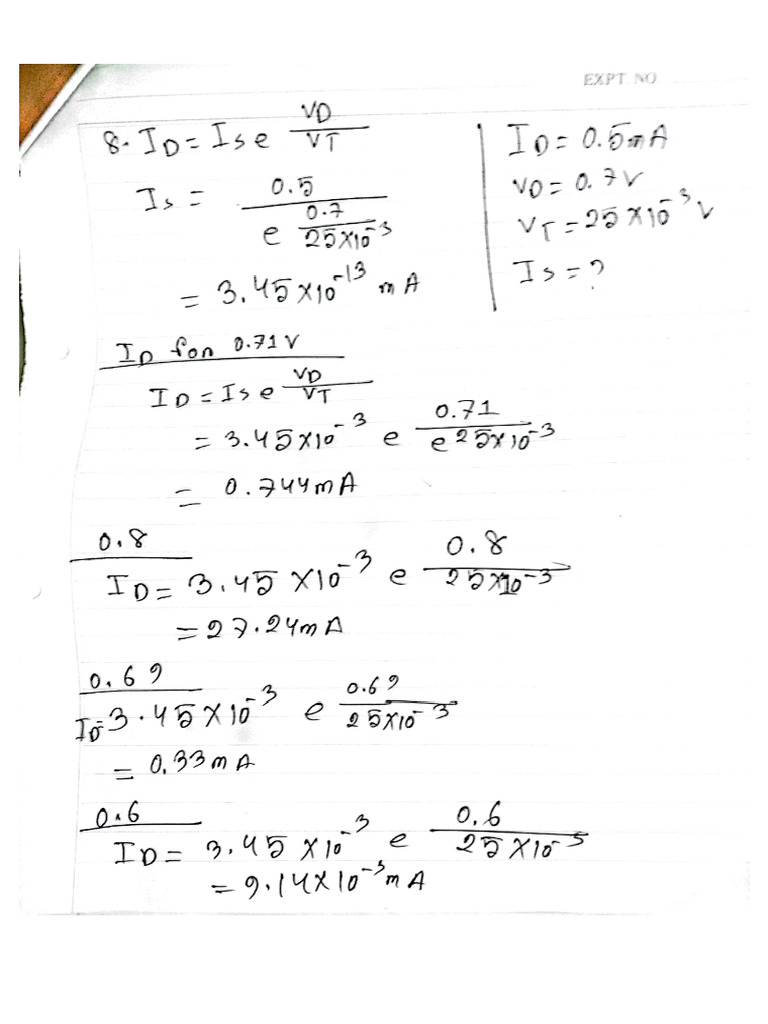 EXPT. NO
8. ID = Is e VD/VT
Is = 0.5 / e 0.7/25×10-3
= 3.45×10-13 mA
ID = 0.5mA
VD = 0.7V
VT = 25×10-3 V
Is = ?
ID for 0.71V
ID = Is e VD/VT
= 3.45×10-3 e 0.71/e25×10-3
= 0.744mA
0.8
ID = 3.45×10-3 e 0.8/25×10-3
= 27.24mA
0.69
ID = 3.45×10-3 e 0.69/25×10-3
= 0.33mA
0.6
ID = 3.45×10-3 e 0.6/25×10-3
= 9.14×10-3 mA